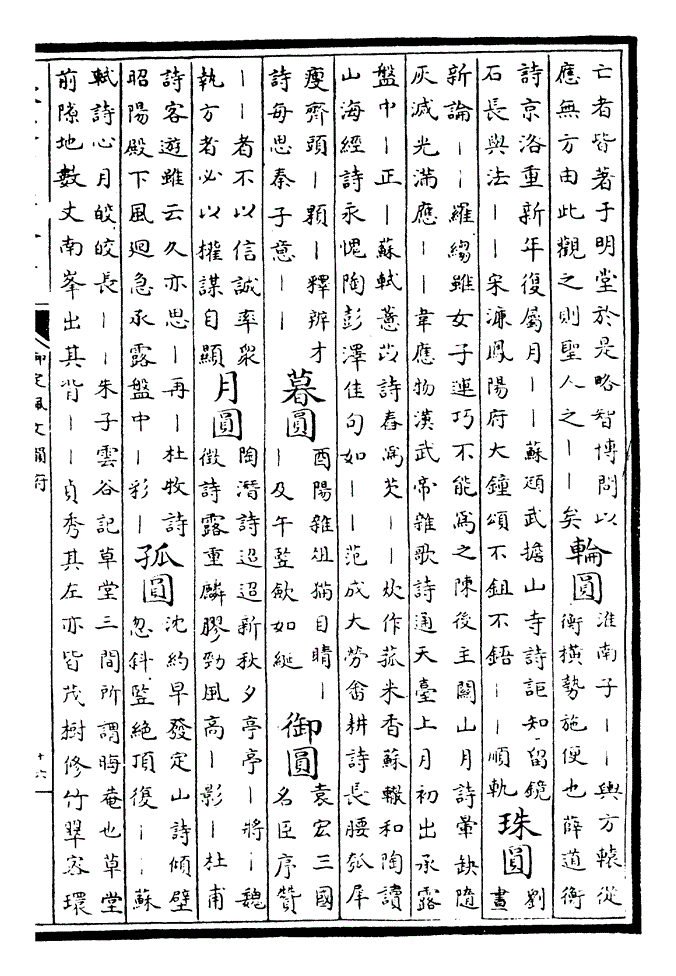 亡者皆著于明堂於是略智博問以
應無方由此觀之則聖人之丨丨矣
輪圓
淮南子丨丨輿方轅從
衡橫勢施便也薛道衡
詩京洛重新年復屬月丨丨蘇頲武擔山寺詩詎知留鏡
石長與法丨丨宋濂鳳陽府大鐘頌不鉏不鋙丨丨順軌
珠圓
劉
晝
新論丨丨羅縐雖女子運巧不能為之陳後主關山月詩暈缺隨
灰減光滿應丨丨韋應物漢武帝雜歌詩通天臺上月初出承露
盤中丨正丨蘇軾薏苡詩舂為芡丨丨炊作菰米香蘇轍和陶讀
山海經詩永愧陶彭澤佳句如丨丨范成大勞畬耕詩長腰瓠犀
瘦齊頭丨顆丨釋辨才
詩每思秦子意丨丨
暮圓
酉陽雜俎猫目睛丨
丨及午竪歛如綖
御圓
袁宏三國
名臣序贊
丨丨者不以信誠率衆
執方者必以權謀自顯
月圓
陶潛詩迢迢新秋夕亭亭丨將丨魏
徵詩露重麟膠勁風高丨影丨杜甫
詩客遊雖云久亦思丨再丨杜牧詩
昭陽殿下風迴急承露盤中丨彩丨
孤圓
沈約早發定山詩傾壁
忽斜竪絶頂復丨丨蘇
軾詩心月皎皎長丨丨朱子雲谷記草堂三間所謂晦菴也草堂
前隙地數丈南峯出其背丨丨貞秀其左亦皆茂樹修竹翠宻環
御定佩文韻府
十六